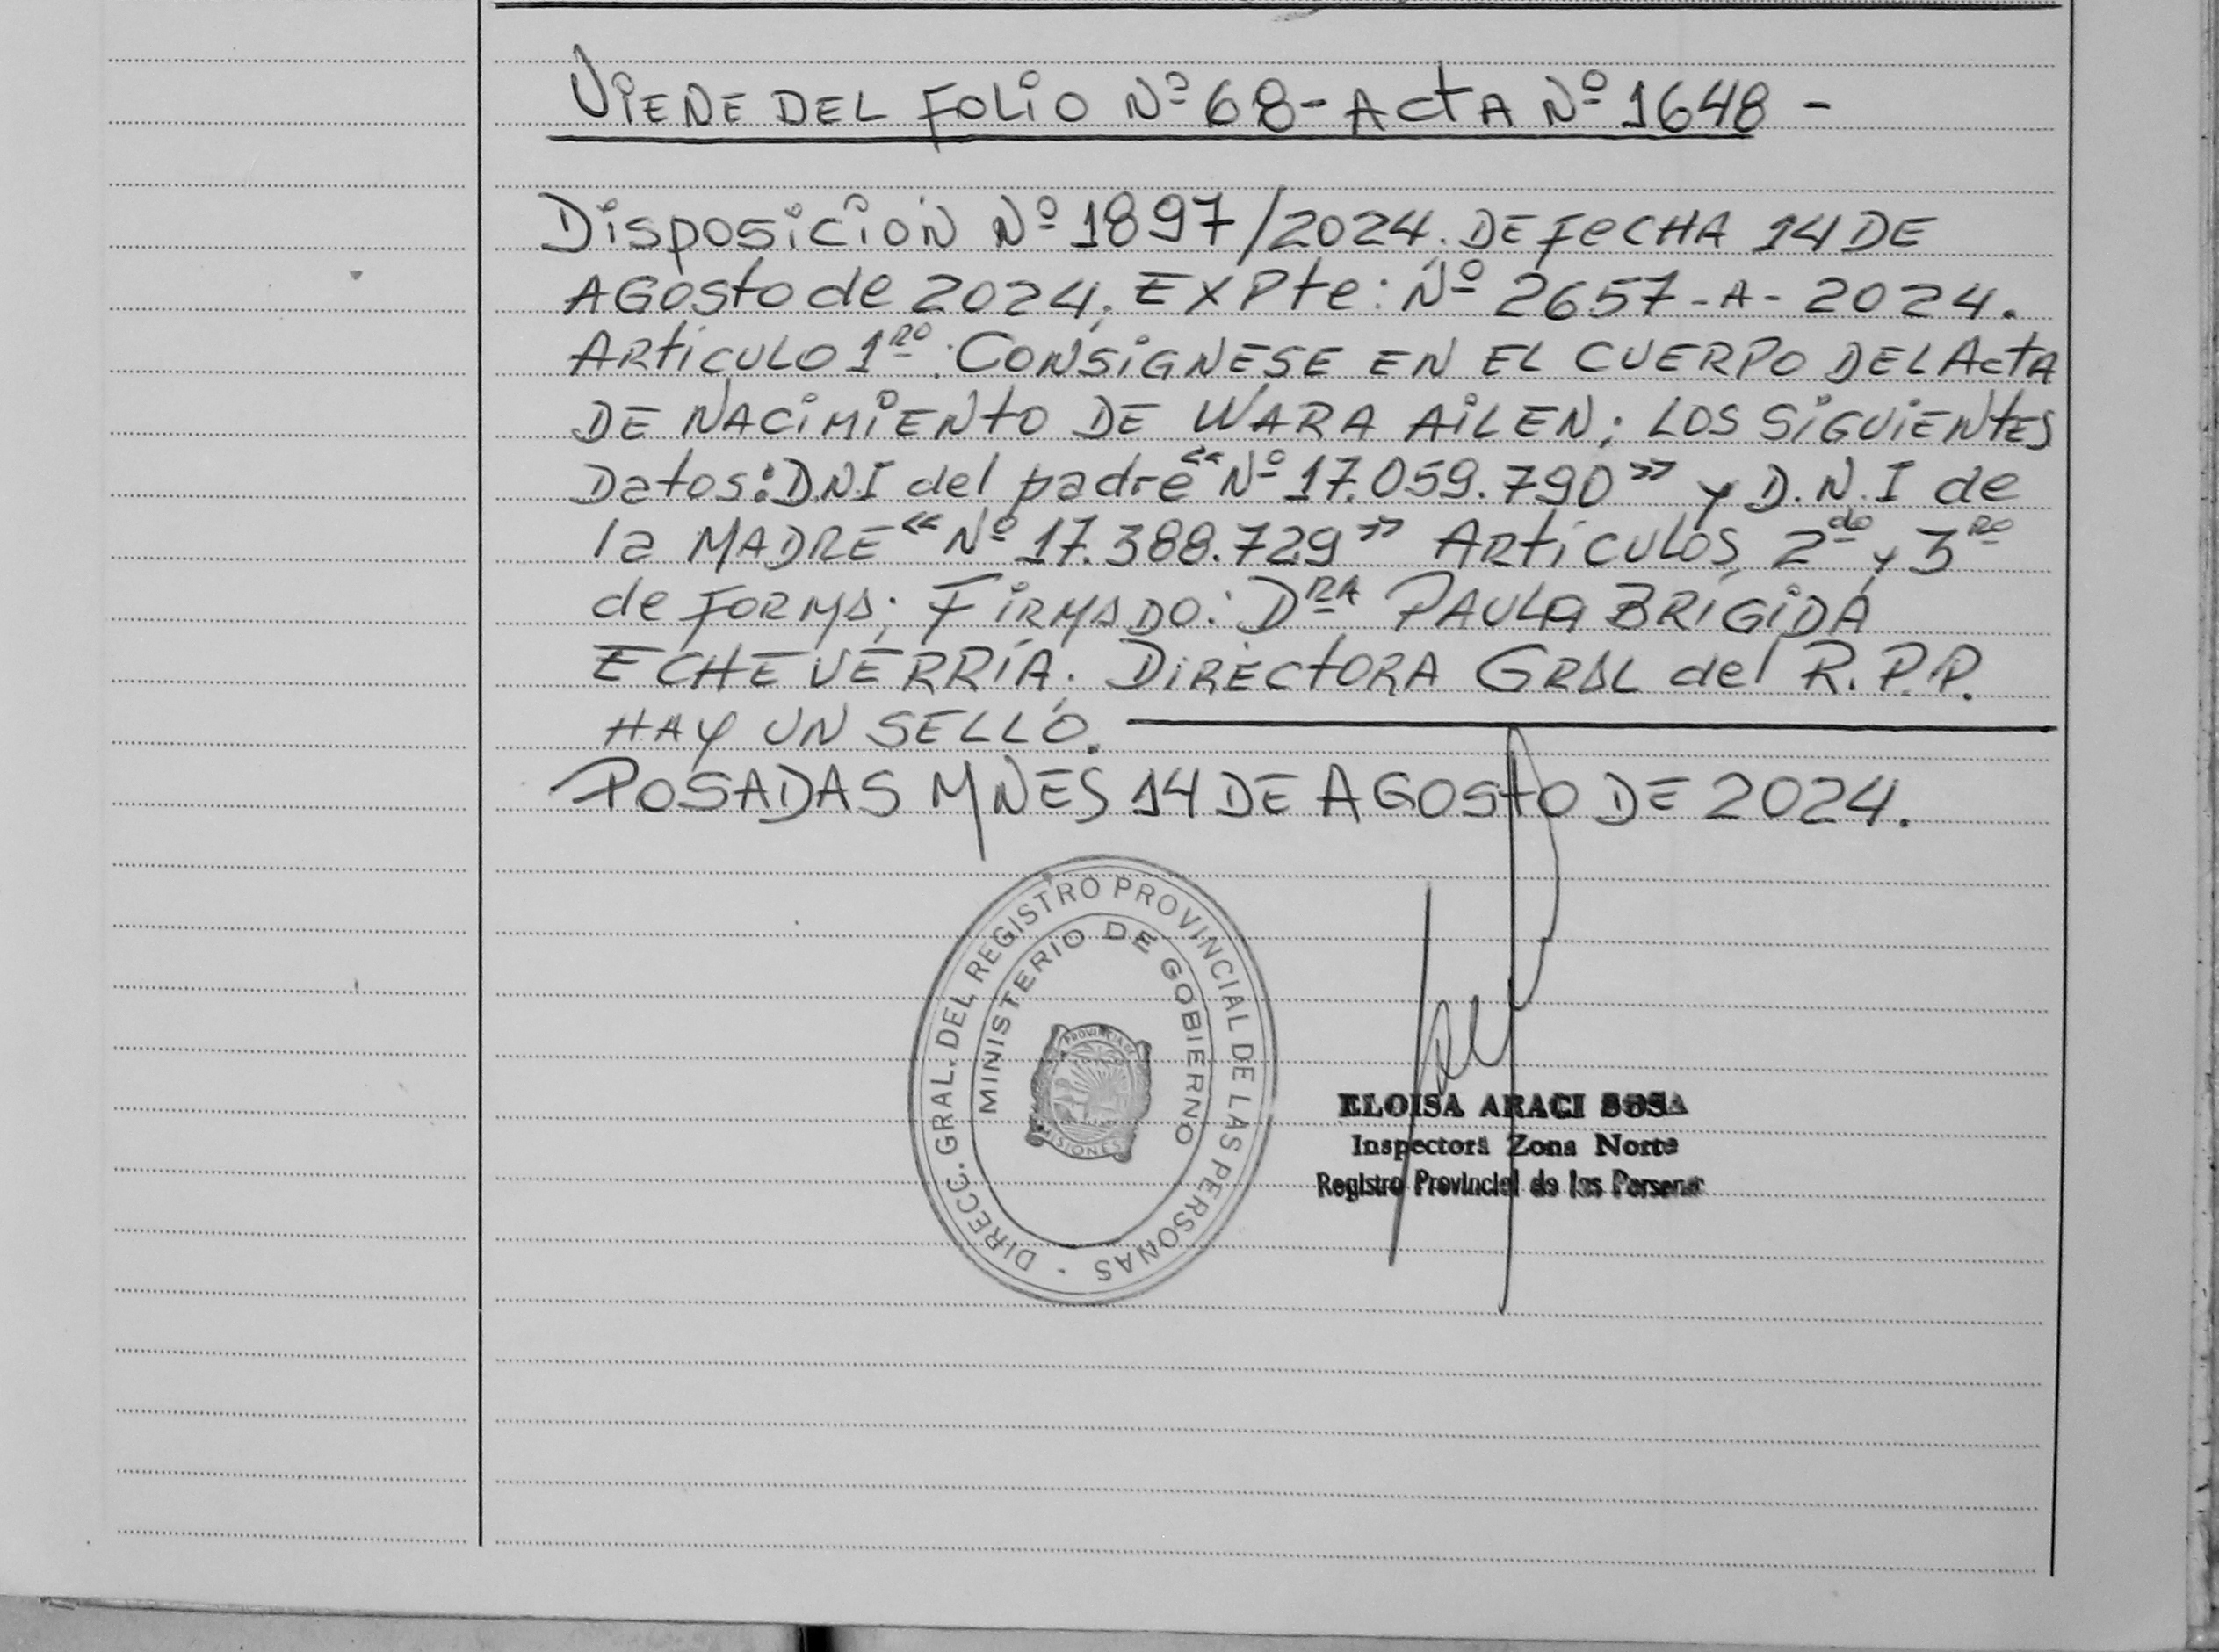 VIENE DEL FOLIO Nº 68 - ACTA Nº 1648 -
Disposición Nº 1897/2024. DE FECHA 14 DE
AGosto de 2024. EXPte: Nº 2657-A-2024.
ARtiCULO 1RO: CONSIGNESE EN EL CUERPO DEL ActA
DE NACIMIENTO DE WARA AILEN; LOS SIGUIENTES
Datos: D.N.I del padre "Nº 17.059.790" y D.N.I de
la MADRE "Nº 17.388.729" ARtiCULOS 2do y 3RO
de FORMA; FIRMADO: DRA PAULA BRÍGIDA
ECHEVERRÍA. DIRECTORA GRAL del R.P.P.
HAY UN SELLO.
POSADAS MNES 14 DE AGOSTO DE 2024.
DIRECC. GRAL. DEL REGISTRO PROVINCIAL DE LAS PERSONAS -
MINISTERIO DE GOBIERNO
PROVINCIA DE
MISIONES
ELOISA ARACI SOSA
Inspectora Zona Norte
Registro Provincial de las Personas